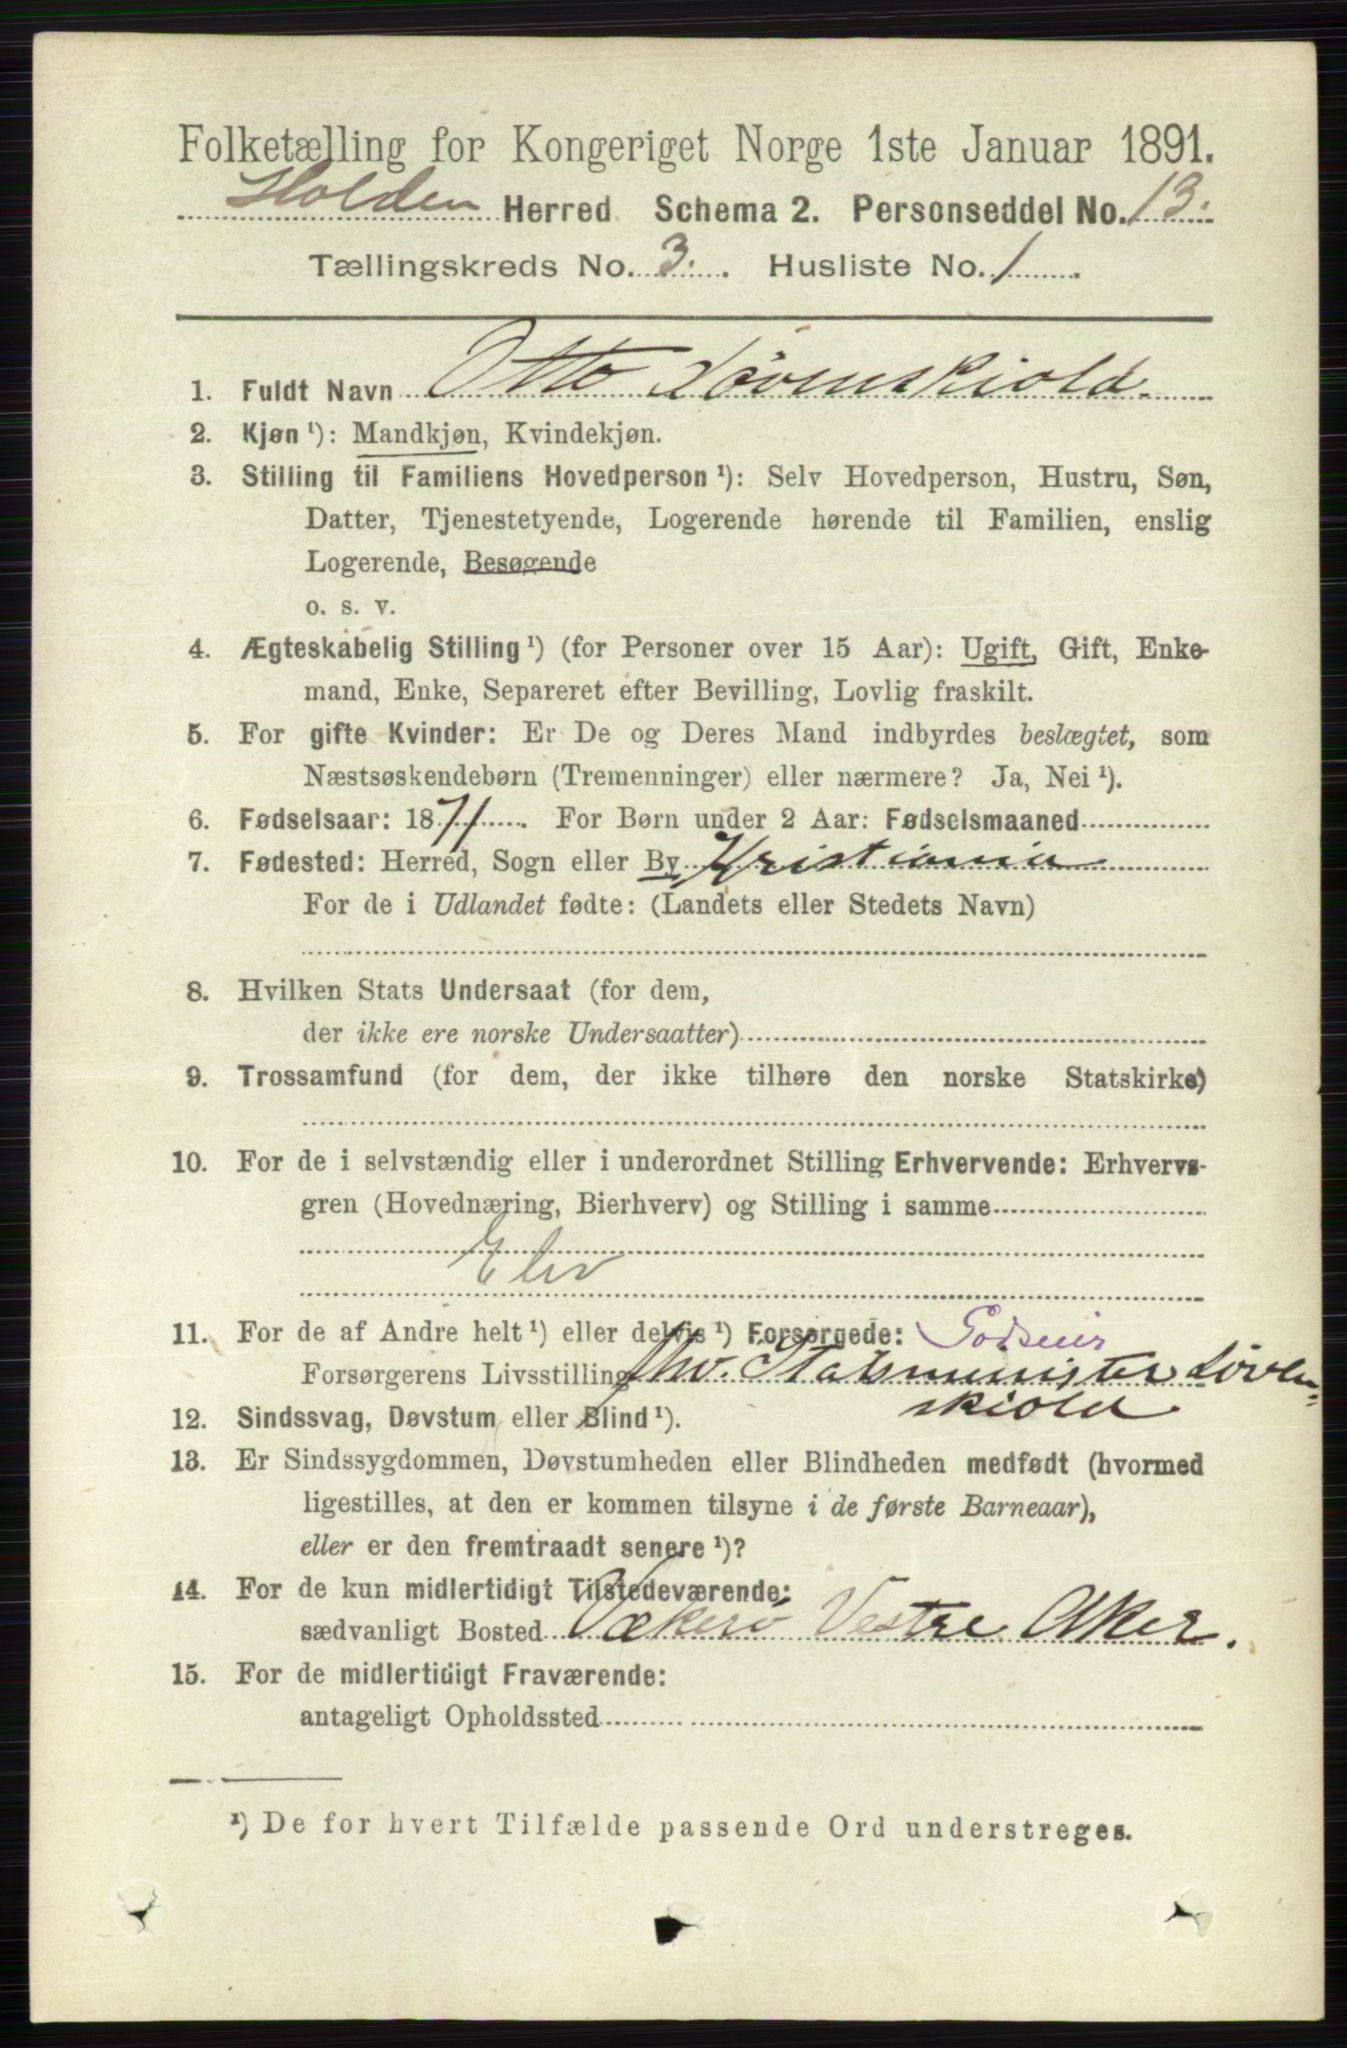 Folketælling for Kongeriget Norge 1ste Januar 1891.
Holden Herred Schema 2. Personseddel No. 13.
Tællingskreds No. 3. Husliste No. 1
1. Fuldt Navn Otto Løvenskiold.
2. Kjøn ¹): Mandkjøn, Kvindekjøn.
3. Stilling til Familiens Hovedperson ¹): Selv Hovedperson, Hustru, Søn,
Datter, Tjenestetyende, Logerende hørende til Familien, enslig
Logerende, Besøgende
o. s. v.
4. Ægteskabelig Stilling ¹) (for Personer over 15 Aar): Ugift, Gift, Enke-
mand, Enke, Separeret efter Bevilling, Lovlig fraskilt.
5. For gifte Kvinder: Er De og Deres Mand indbyrdes beslægtet, som
Næstsøskendebørn (Tremenninger) eller nærmere? Ja, Nei ¹).
6. Fødselsaar: 1871. For Børn under 2 Aar: Fødselsmaaned
7. Fødested: Herred, Sogn eller By Kristiania
For de i Udlandet fødte: (Landets eller Stedets Navn)
8. Hvilken Stats Undersaat (for dem,
der ikke ere norske Undersaatter)
9. Trossamfund (for dem, der ikke tilhøre den norske Statskirke)
10. For de i selvstændig eller i underordnet Stilling Erhvervende: Erhvervs-
gren (Hovednæring, Bierhverv) og Stilling i samme
Elev
11. For de af Andre helt ¹) eller delvis ¹) Forsørgede: Godseier
Forsørgerens Livsstilling fhv. Statsminister Løven=
skiold
12. Sindssvag, Døvstum eller Blind ¹).
13. Er Sindssygdommen, Døvstumheden eller Blindheden medfødt (hvormed
ligestilles, at den er kommen tilsyne i de første Barneaar),
eller er den fremtraadt senere ¹)?
14. For de kun midlertidigt Tilstedeværende:
sædvanligt Bosted Vækerø Vestre Aker.
15. For de midlertidigt Fraværende:
antageligt Opholdssted
¹) De for hvert Tilfælde passende Ord understreges.